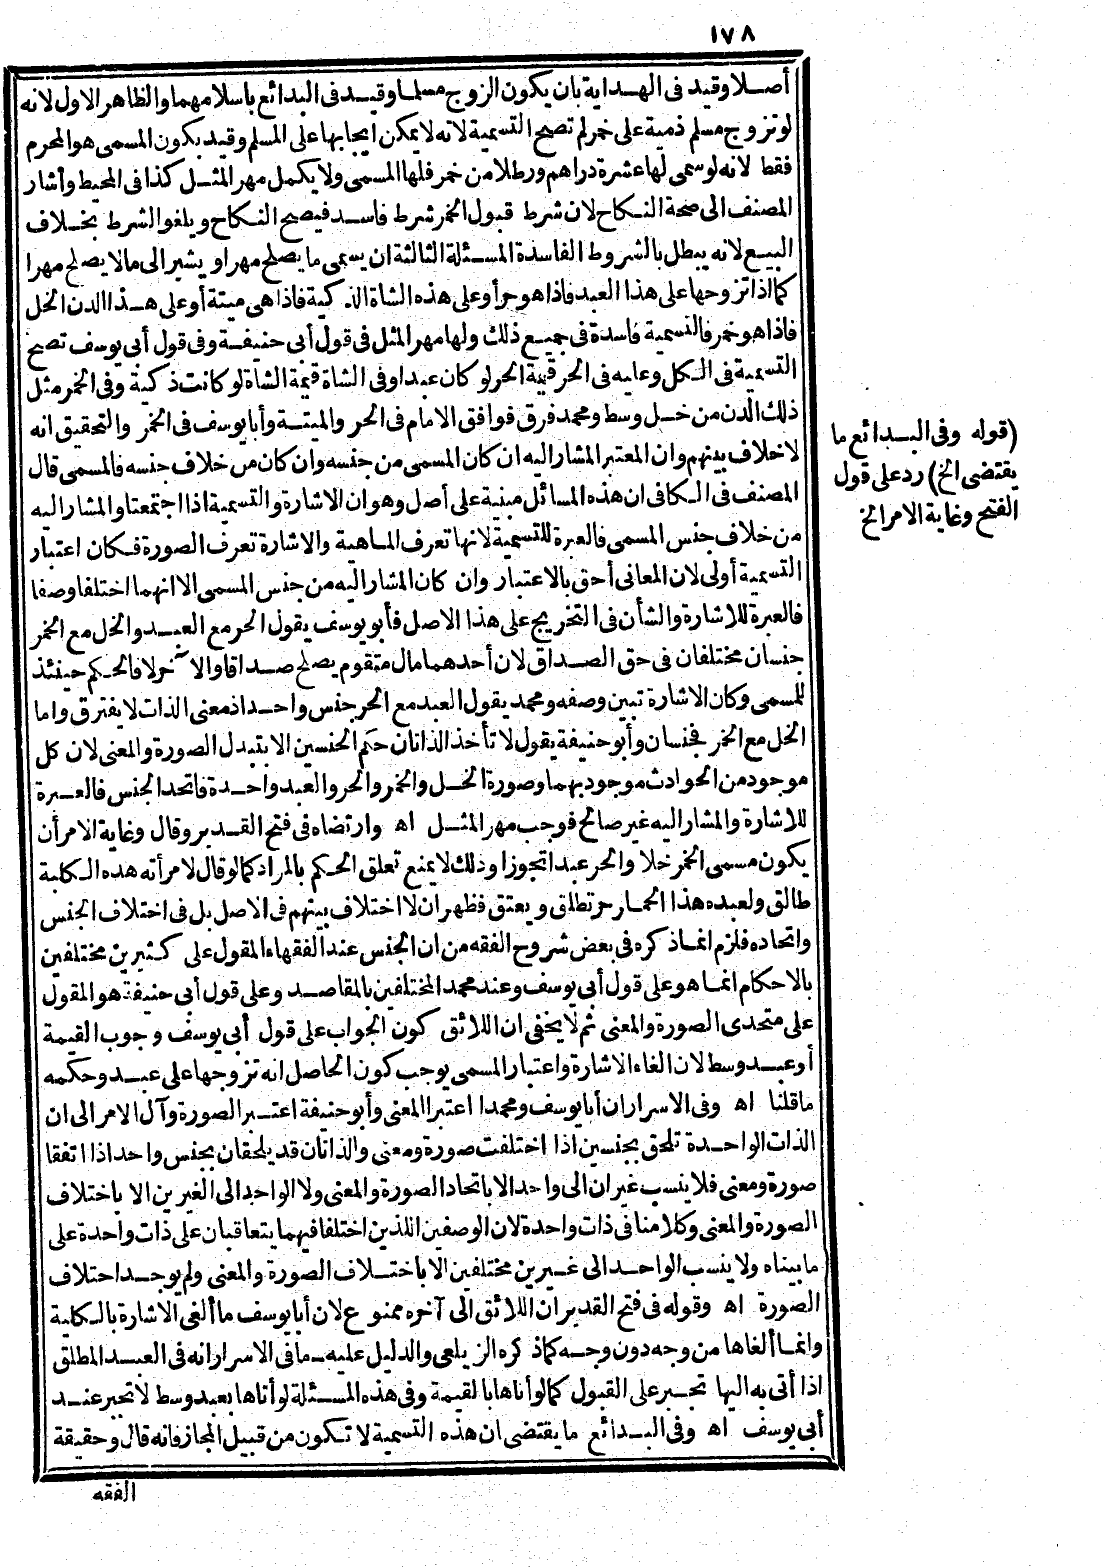 ١٧٨
أصلا وقيد فى الهداية بان يكون الزوج مسلما وقيد فى البدائع باسلامهما والظاهر الاول لانه
لو تزوج مسلم ذمية على خمر لم تصح التسمية لانه لا يمكن ايجابها على المسلم وقيد بكون المسمى هو المحرم
فقط لانه لو سمى لها عشرة دراهم ورطلا من خمر فلها المسمى ولا يكمل مهر المثل كذا فى المحيط وأشار
المصنف الى صحة النكاح لان شرط قبول الخمر شرط فاسد فيصح النكاح ويلغو الشرط بخلاف
البيع لانه يبطل بالشروط الفاسدة المسئلة الثالثة ان يسمى ما يصلح مهرا ويشير الى مالا يصلح مهرا
كما اذا تزوجها على هذا العبد فاذا هو حر أو على هذه الشاة الذكية فاذا هى ميتة أو على هذا الدن الخل
فاذا هو خمر فالتسمية فاسدة فى جميع ذلك ولها مهر المثل فى قول أبى حنيفة وفى قول أبى يوسف تصح
التسمية فى الكل وعليه فى الحر قيمة الحر لو كان عبدا وفى الشاة قيمة الشاة لو كانت ذكية وفى الخمر مثل
ذلك الدن من خل وسط ومحمد فرق فوافق الامام فى الحر والميتة وأبا يوسف فى الخمر والتحقيق انه
لا خلاف بينهم وان المعتبر المشار اليه ان كان المسمى من جنسه وان كان من خلاف جنسه فالمسمى قال
المصنف فى الكافى ان هذه المسائل مبنية على أصل وهو ان الاشارة والتسمية اذا اجتمعتا والمشار اليه
من خلاف جنس المسمى فالعبرة للتسمية لانها تعرف الماهية والاشارة تعرف الصورة فكان اعتبار
التسمية أولى لان المعانى أحق بالاعتبار وان كان المشار اليه من جنس المسمى الا انهما اختلفا وصفا
فالعبرة للاشارة والشأن فى التخريج على هذا الاصل فأبو يوسف يقول الحر مع العبد والخل مع الخمر
جنسان مختلفان فى حق الصداق لان أحدهما مال متقوم يصلح صداقا والآخر لا فالحكم حينئذ
للمسمى وكان الاشارة تبين وصفه ومحمد يقول العبد مع الحر جنس واحد اذ معنى الذات لا يفترق واما
الخل مع الخمر فجنسان وأبو حنيفة يقول لا تأخذ الذاتان حكم الجنسين الا بتبدل الصورة والمعنى لان كل
موجود من الحوادث موجود بهما وصورة الخل والخمر والحر والعبد واحدة فاتحد الجنس فالعبرة
للاشارة والمشار اليه غير صالح فوجب مهر المثل اه وارتضاه فى فتح القدير وقال وغاية الامر أن
يكون مسمى الخمر خلا والحر عبدا تجوزا وذلك لا يمنع تعلق الحكم بالمراد كما لو قال لامرأته هذه الكلبة
طالق ولعبده هذا الحمار حر تطلق ويعتق فظهر ان لا اختلاف بينهم فى الاصل بل فى اختلاف الجنس
واتحاده فلزم انما ذكره فى بعض شروح الفقه من ان الجنس عند الفقهاء المقول على كثيرين مختلفين
بالاحكام انما هو على قول أبى يوسف وعند محمد المختلفين بالمقاصد وعلى قول أبى حنيفة هو المقول
على متحدى الصورة والمعنى ثم لا يخفى ان اللائق كون الجواب على قول أبى يوسف وجوب القيمة
أو عبد وسط لان الغاء الاشارة واعتبار المسمى يوجب كون الحاصل انه تزوجها على عبد وحكمه
ما قلنا اه وفى الاسرار ان أبا يوسف ومحمدا اعتبرا المعنى وأبو حنيفة اعتبر الصورة وآل الامر الى ان
الذات الواحدة تلحق بجنسين اذا اختلفت صورة ومعنى والذاتان قد يلحقان بجنس واحد اذا اتفقا
صورة ومعنى فلا ينسب غيران الى واحد الا باتحاد الصورة والمعنى ولا الواحد الى الغيرين الا باختلاف
الصورة والمعنى وكلامنا فى ذات واحدة لان الوصفين اللذين اختلفا فيهما يتعاقبان على ذات واحدة على
ما بيناه ولا ينسب الواحد الى غيرين مختلفين الا باختلاف الصورة والمعنى ولم يوجد اختلاف
الصورة اه وقوله فى فتح القدير ان اللائق الى آخره ممنوع لان أبا يوسف ما ألغى الاشارة بالكلية
وانما ألغاها من وجه دون وجه كما ذكره الزيلعى والدليل عليه ما فى الاسرار انه فى العبد المطلق
اذا أتى به اليها تجبر على القبول كما لو أتاها بالقيمة وفى هذه المسئلة لو أتاها بعبد وسط لا تجبر عند
أبى يوسف اه وفى البدائع ما يقتضى ان هذه التسمية لا تكون من قبيل المجاز فانه قال وحقيقة
الفقه
(قوله وفى البدائع ما
يقتضى الخ) رد على قول
الفتح وغاية الامر الخ